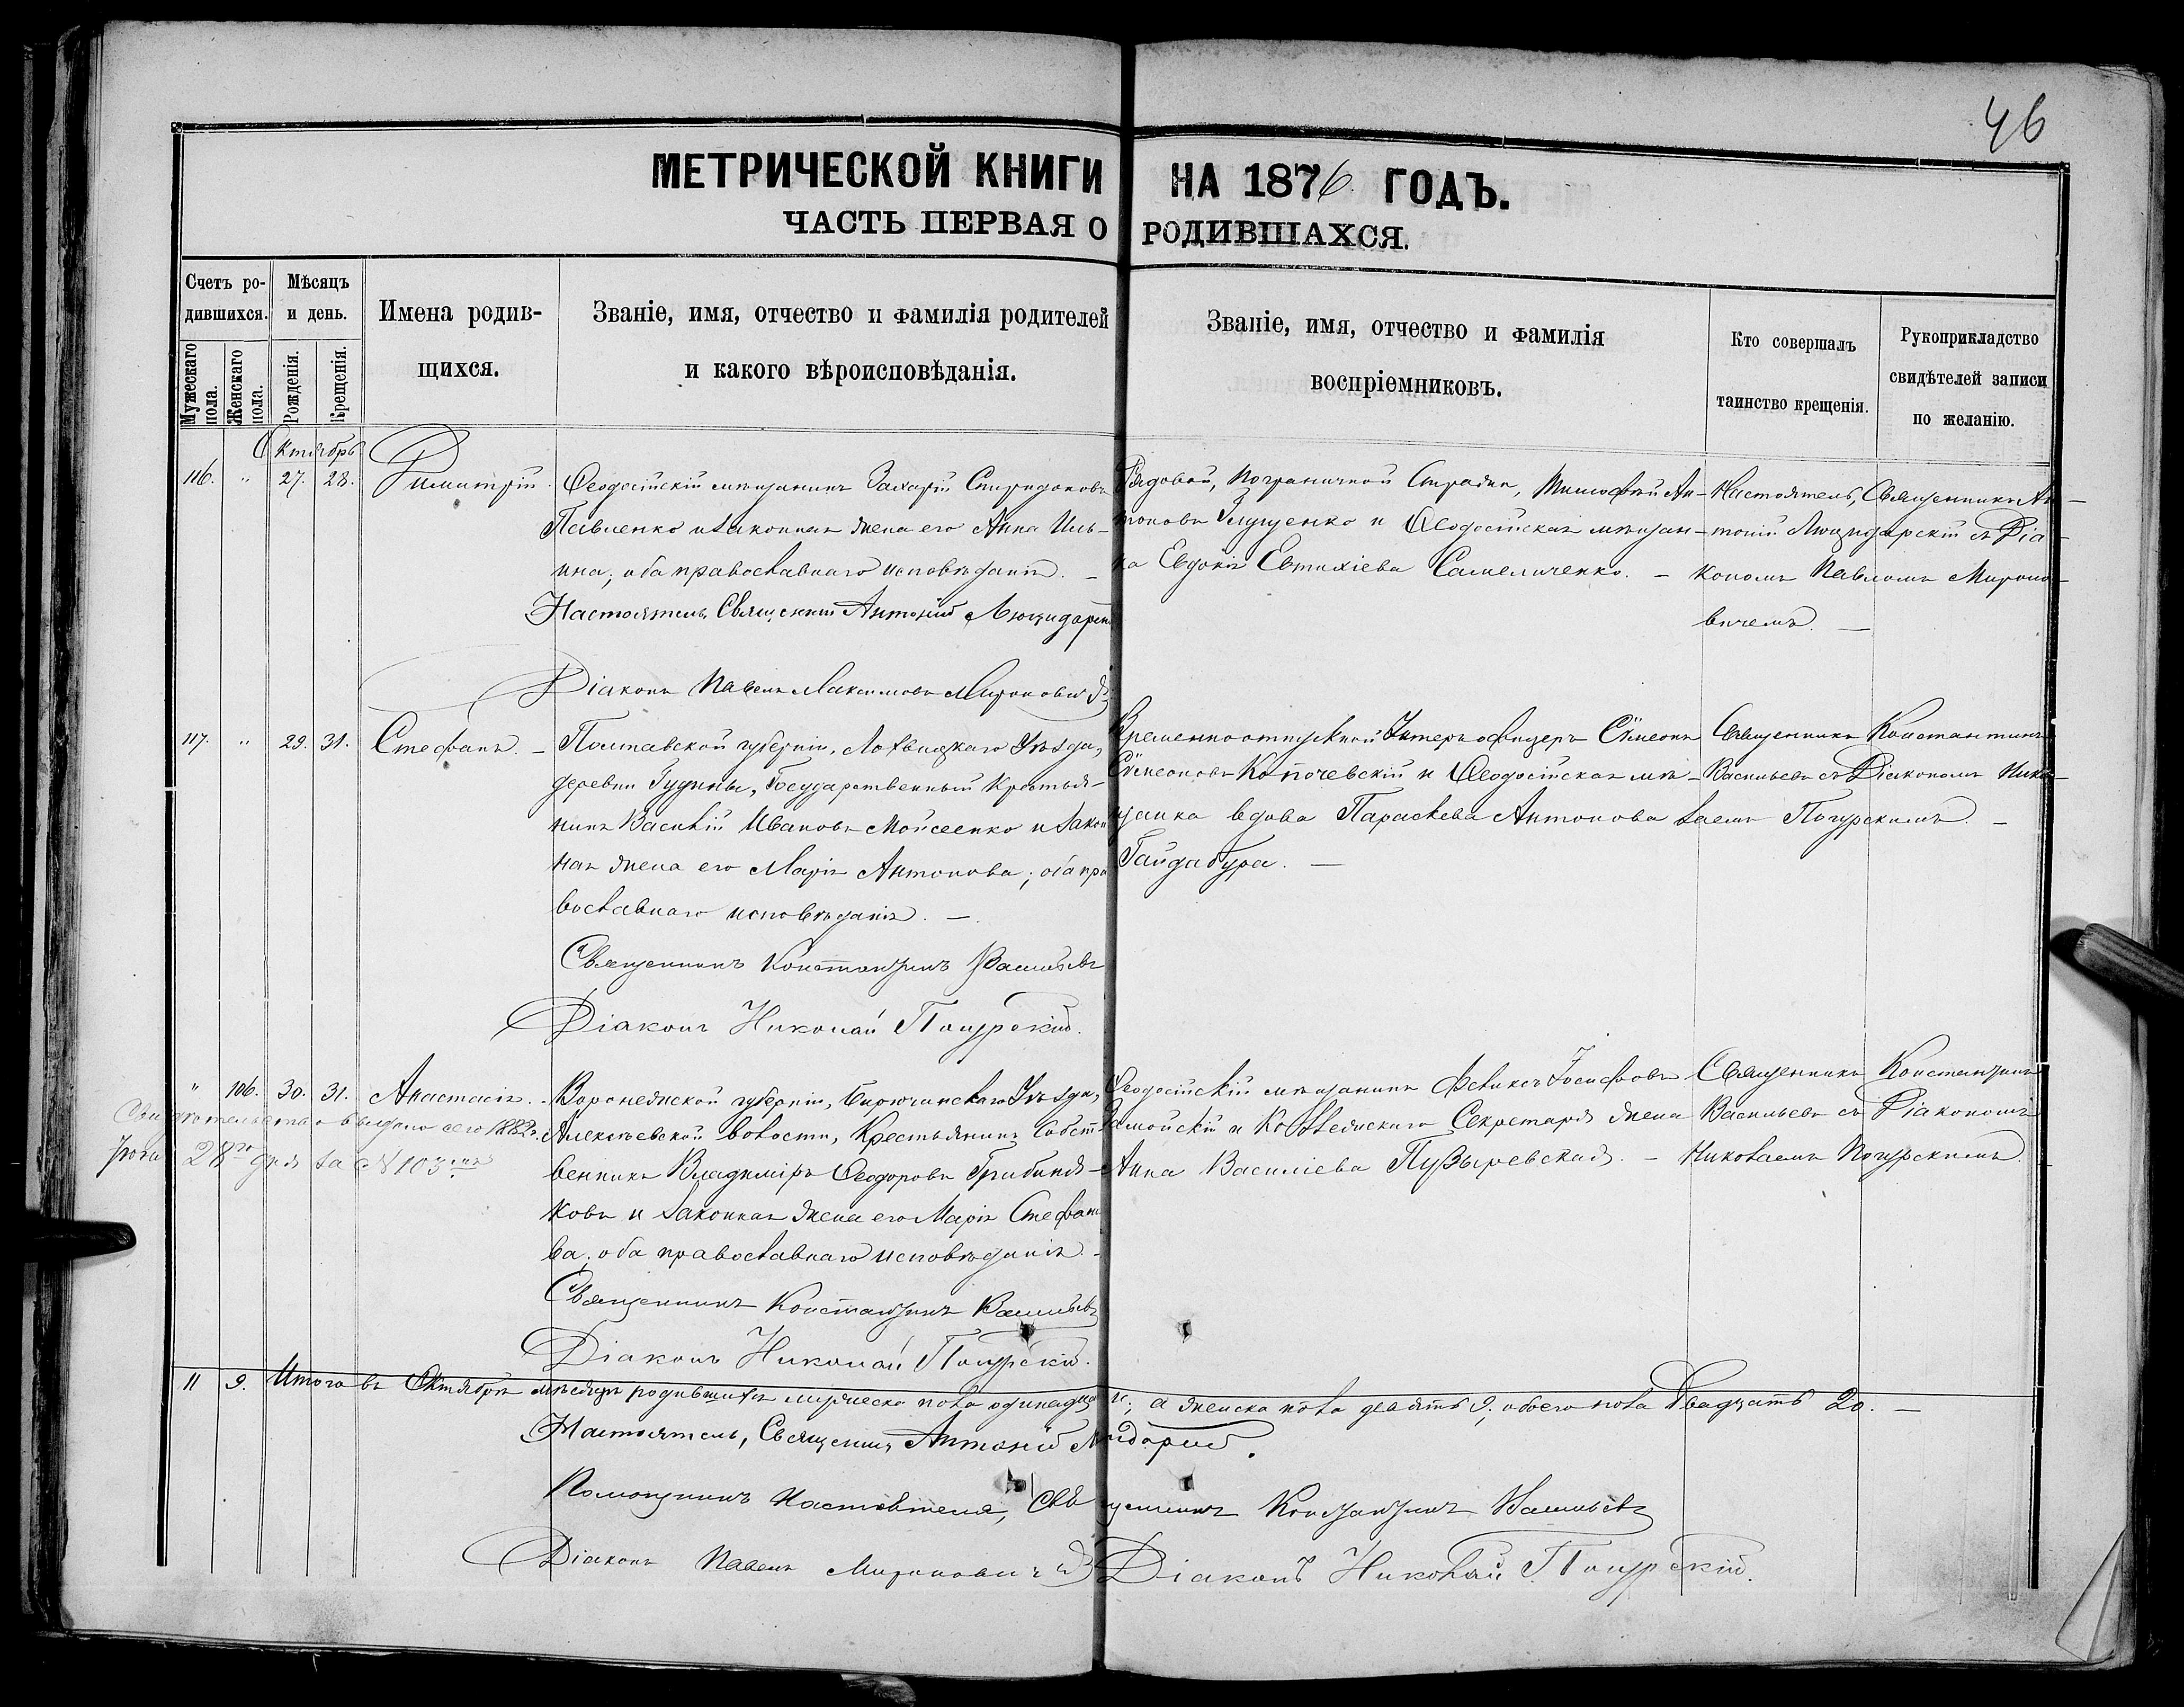 46
МЕТРИЧЕСКОЙ КНИГИ НА 1876 ГОДЪ.
ЧАСТЬ ПЕРВАЯ О РОДИВШАХСЯ.
Счетъ ро-
дившихся.
Мужескаго пола.
Женскаго пола.
Мѣсяцъ
и день.
Рожденія.
Крещенія.
Имена родив-
щихся.
Званіе, имя, отчество и фамилія родителей
и какого вѣроисповѣданія.
Званіе, имя, отчество и фамилія
воспріемниковъ.
Кто совершалъ
таинство крещенія.
Рукоприкладство
свидѣтелей записи
по желанію.
Октябрь
116. " 27. 28. Димитрій.
Ѳеодосійскій мѣщанинъ Захарій Спиридоновъ
Павленко и законная жена его Анна Иль-
ина; оба православнаго исповѣданія. –
Настоятель, Священникъ Антоній
Діаконъ Павелъ Максимовъ Мироновичъ
Рядовой, пограничной Стражи, Тимофей Ан-
тоновъ и Ѳеодосійская мѣщан-
ка Евдокія Евтихіева Самельченко. –
Настоятель, Священникъ Ан-
тоній съ Діа-
кономъ Павломъ Мироно-
вичемъ. –
117. " 29. 31. Стефанъ. –
Полтавской губерніи, Лохвицкаго Уѣзда,
деревни Гудимы, Государственный Крестья-
нинъ Василій Ивановъ Мойсеенко и закон
ная жена его Марія Антонова; оба пра
вославнаго исповѣданія. –
Священникъ Константинъ Васильевъ
Діаконъ Николай Погурскій.
Временноотпускной Унтеръ офицеръ Сѵмеонъ
Сѵмеоновъ Копочевскій и Ѳеодосійская мѣ-
щанка вдова Параскева Антонова
Гайдабура. –
Священникъ Константинъ
Васильевъ съ Діакономъ Нико-
лаемъ Погурскимъ. –
" 106. 30. 31. Анастасія.
Воронежской губерніи, Бирюченскаго Уѣзда,
Алексѣевской волости, Крестьянинъ Собст
венникъ Владиміръ Ѳеодоровъ Грибиня-
ковъ и законная жена его Марія Стефано
ва; оба православнаго исповѣданія. –
Священникъ Константинъ Васильевъ
Діаконъ Николай Погурскій.
Ѳеодосійскій мѣщанинъ Феликсъ Іосифовъ
Замойскій и Коллежскаго Секретаря жена
Анна Василіева Пузыревская. –
Священникъ Константинъ
Васильевъ съ Діакономъ
Николаемъ Погурскимъ.
Свидѣтельство выдано сего 1882.
года 28го дня за № 103
11 9. Итого въ Октябрѣ мѣсяцѣ родившихся мужеска пола одинадцать, а женска пола девять 9; обоего пола Двадцать 20. –
Настоятель, Священникъ Антоній
Помощникъ Настоятеля, Священникъ Константинъ Васильевъ
Діаконъ Павелъ Мироновичъ Діаконъ Николай Погурскій.